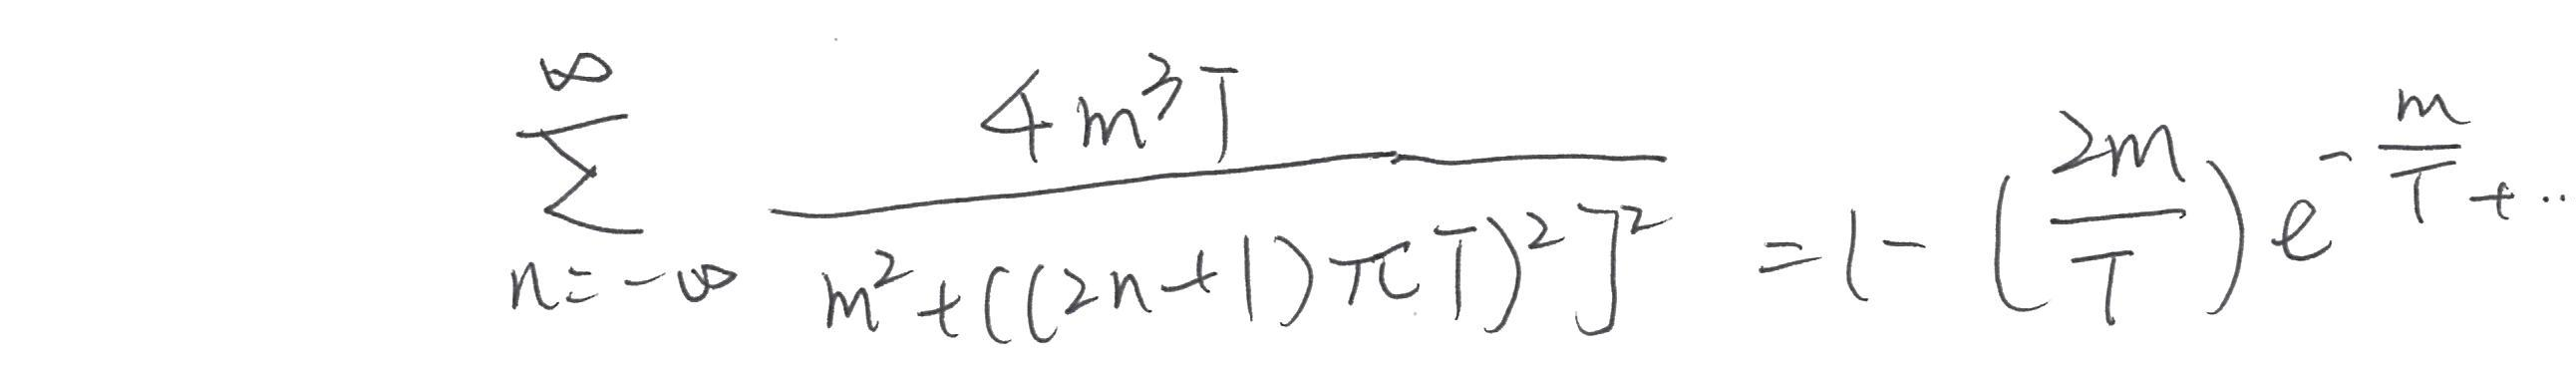 \sum_{n=-\infty}^{\infty} \frac{4m^3T}{m^2+((2n+1)\pi T)^2]^2} = 1 - \left(\frac{2m}{T}\right) e^{-\frac{m}{T}} + \cdots